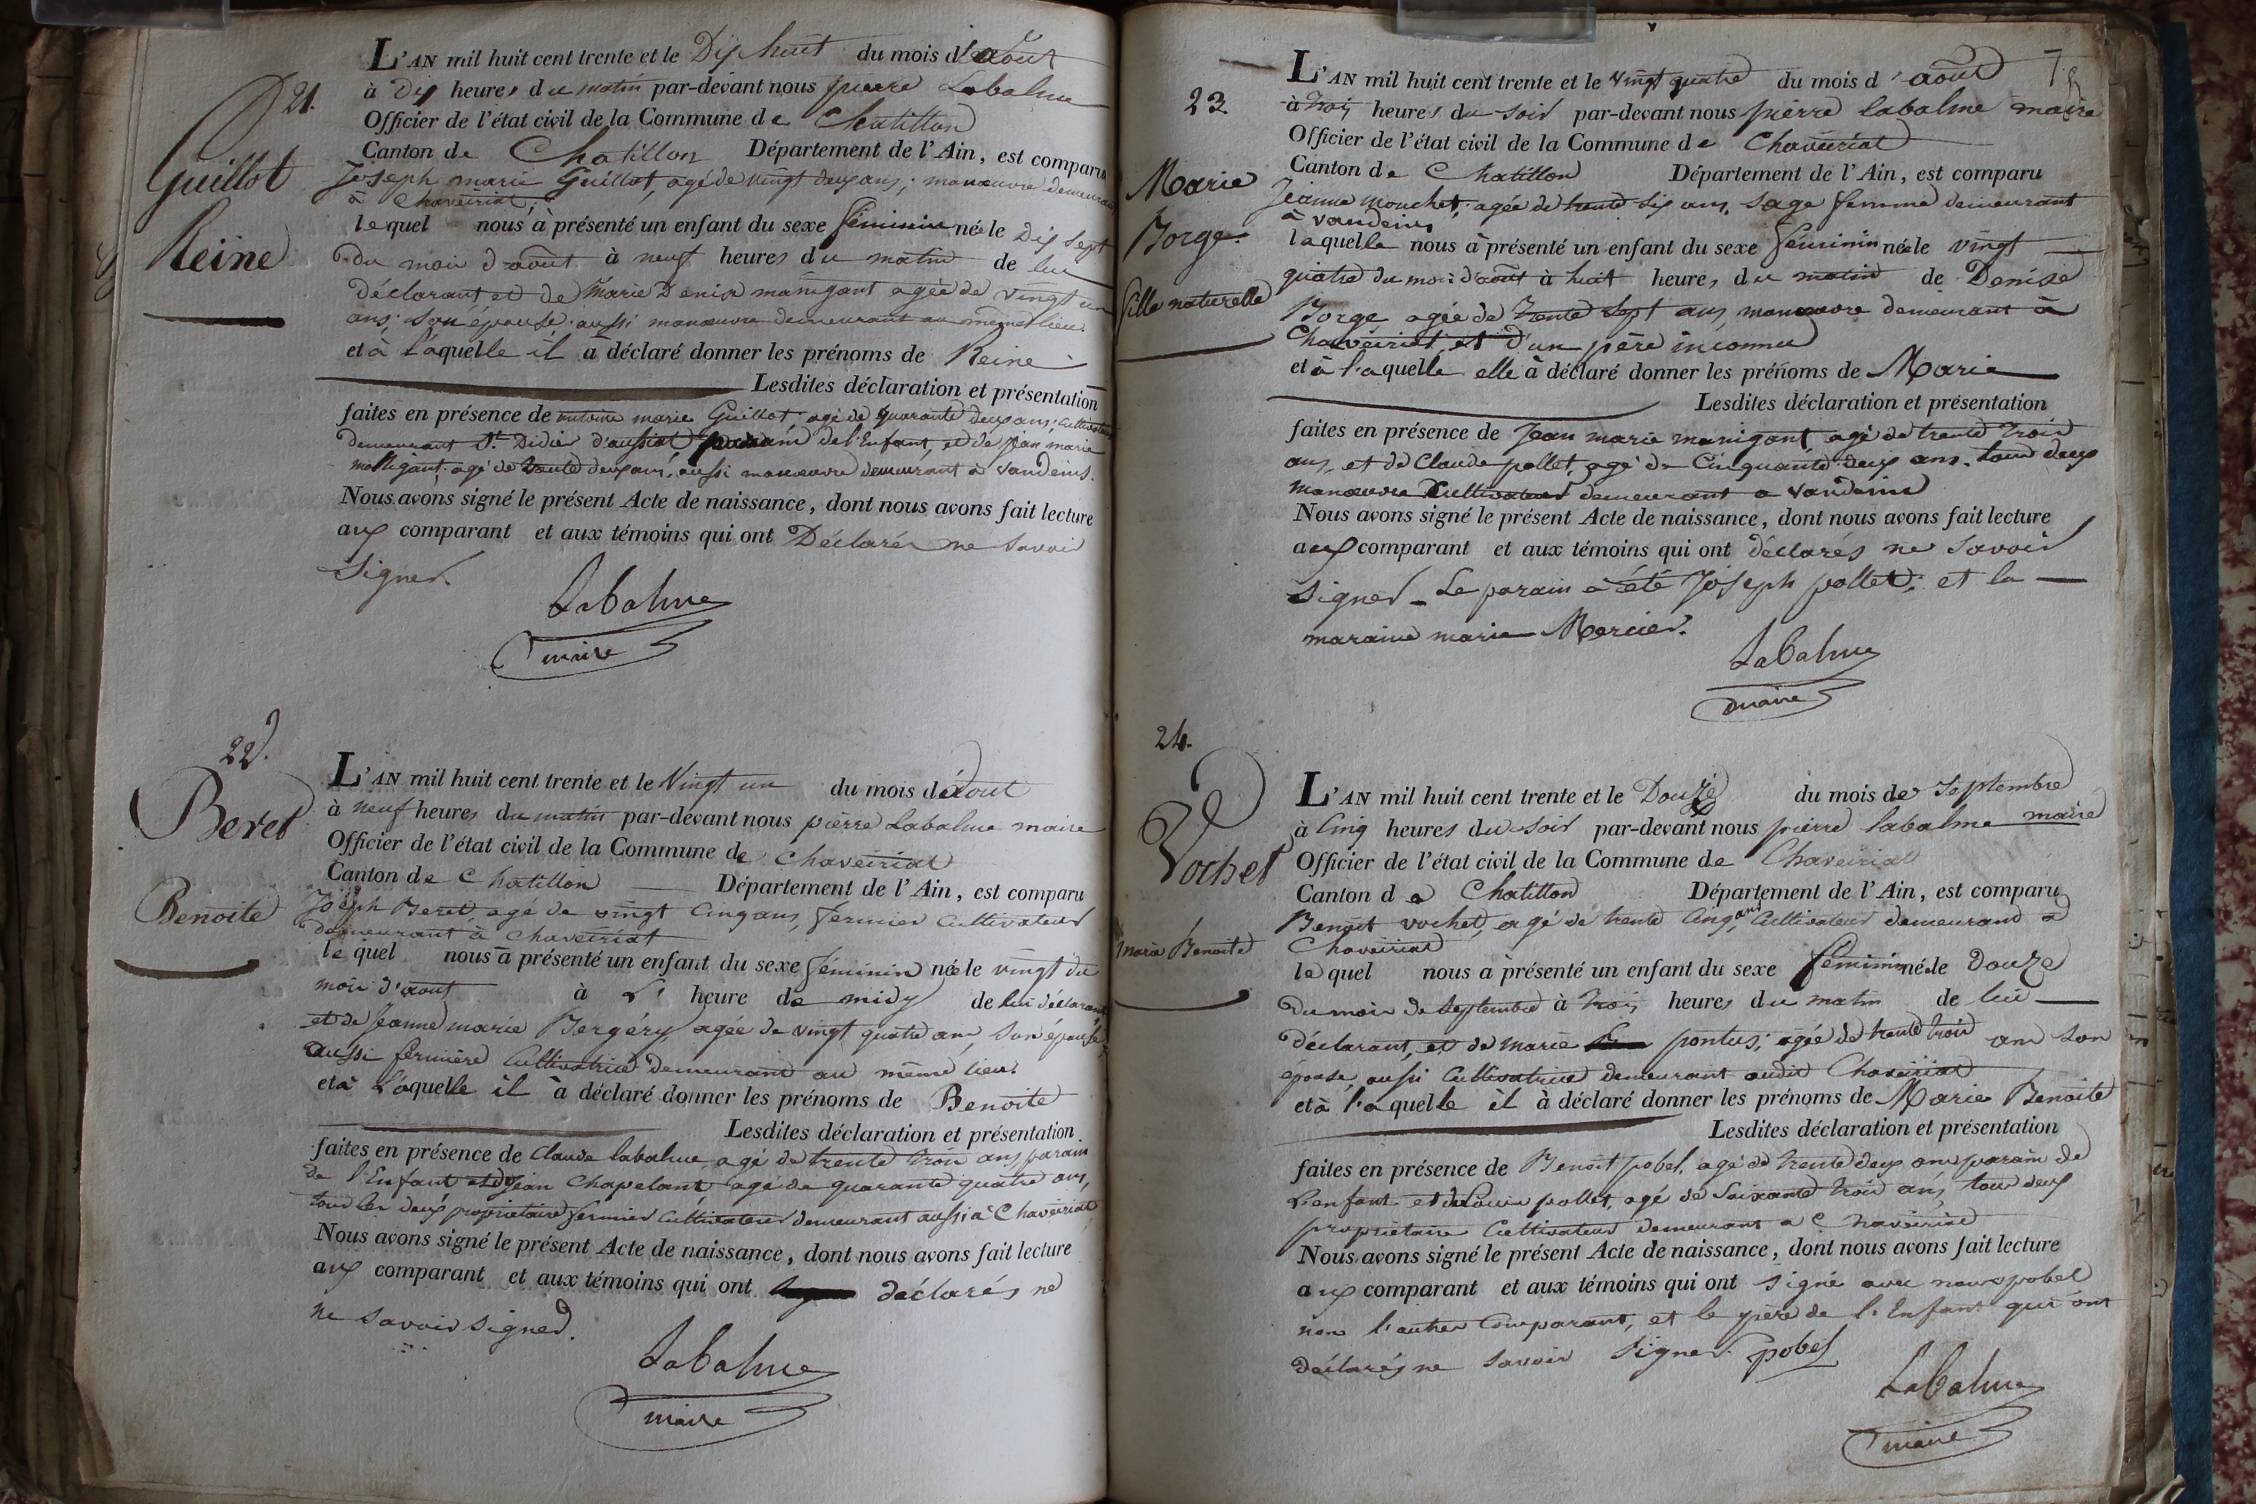 21.
Guillot
Reine
L'AN mil huit cent trente et le Dix huit du mois d'aout
à dix heures du matin par-devant nous pierre Labalme
Officier de l'état civil de la Commune de Chatillon
Canton de Chatillon Département de l'Ain, est comparu
Joseph marie Guillot, agé de vingt deux ans, manœuvre demeurant
à Chaveiriat,
lequel nous à présenté un enfant du sexe féminin née le dix sept
du mois d'aout à neuf heures du matin de lui
déclarant et de Marie Denise manigant agée de vingt un
ans, son épouse aussi manœuvre demeurant au même lieu
et à l'aquelle il à déclaré donner les prénoms de Reine
Lesdites déclaration et présentation
faites en présence de antoine marie Guillot agé de quarante deux ans, cultivateur
demeurant St Didier d'aussiat parain de l'Enfant, et de jean marie
manigant, agé de trente deux ans, aussi manœuvre demeurant à vandeins.
Nous avons signé le présent Acte de naissance, dont nous avons fait lecture
aux comparant et aux témoins qui ont Déclarés ne savoir
signer.
Labalme
maire
22.
Beret
Benoite
L'AN mil huit cent trente et le Vingt un du mois d'aout
à neuf heures du matin par-devant nous pierre Labalme maire
Officier de l'état civil de la Commune de Chaveiriat
Canton de Chatillon Département de l'Ain, est comparu
Joseph Beret agé de vingt cinq ans, fermier Cultivateur
demeurant à chaveiriat
lequel nous à présenté un enfant du sexe féminin née le vingt du
mois d'aout à L' heure de midy de lui déclarant
et de Jeanne marie Bergéry, agée de vingt quatre ans, son épouse
aussi fermière Cultivatrice demeurant au même lieu.
et à L'aquelle il à déclaré donner les prénoms de Benoite
Lesdites déclaration et présentation
faites en présence de Claude labalme, agé de trente trois ans parain
de l'Enfant et de Jean Chapelant agé de quarante quatre ans,
tous les deux proprietaire fermier Cultivateur demeurant aussi à Chaveiriat
Nous avons signé le présent Acte de naissance, dont nous avons fait lecture
aux comparant et aux témoins qui ont déclarés ne
ne savoir signer.
Labalme
maire
7
23
Marie
Borge.
fille naturelle
L'AN mil huit cent trente et le vingt quatre du mois d'aout
à trois heures du soir par-devant nous pierre labalme maire
Officier de l'état civil de la Commune de Chaveiriat
Canton de Chatillon Département de l'Ain, est comparu
Jeanne mouchet, agée de trente six ans, sage femme demeurant
à vandeins
laquelle nous à présenté un enfant du sexe féminin née le vingt
quatre du mois d'aout à huit heures du matin de Denise
Borge agée de trente sept ans, manœuvre demeurant à
Chaveiriat, et d'un père inconnu
et à l'aquelle elle à déclaré donner les prénoms de Marie
Lesdites déclaration et présentation
faites en présence de Jean marie manigant agé de trente trois
ans, et de Claude pollet, agé de Cinquante deux ans, tous deux
manœuvre Cultivateur demeurant a vandeins
Nous avons signé le présent Acte de naissance, dont nous avons fait lecture
aux comparant et aux témoins qui ont déclarés ne savoir
signer - Le parain a été Joseph pollet; et la
maraine marie Mercier.
Labalme
maire
24.
Vochet
Marie Benoite
L'AN mil huit cent trente et le Douze du mois de Septembre
à Cinq heures du soir par-devant nous pierre labalme maire
Officier de l'état civil de la Commune de Chaveiriat
Canton de Chatillon Département de l'Ain, est comparu
Benoit vochet, agé de trente Cinq ans, Cultivateur demeurant à
Chaveiriat
lequel nous a présenté un enfant du sexe féminin née le Douze
du mois de Septembre à trois heures du matin de lui
déclarant, et de marie pontus, agée de trente trois ans son
epouse aussi Cultivatrice demeurant audit Chaveiriat
et à l'aquelle il à déclaré donner les prénoms de Marie Benoite
Lesdites déclaration et présentation
faites en présence de Benoit pobel, agé de trente deux ans parain de
L'enfant et de Louis pollet, agé de Soixante trois ans, tous deux
propriétaire Cultivateur demeurant a Chaveiriat
Nous avons signé le présent Acte de naissance, dont nous avons fait lecture
aux comparant et aux témoins qui ont signé avec nous pobel
non l'autre Comparant, et le père de l'Enfant qui ont
déclarés ne savoir signer. pobel
Labalme
maire